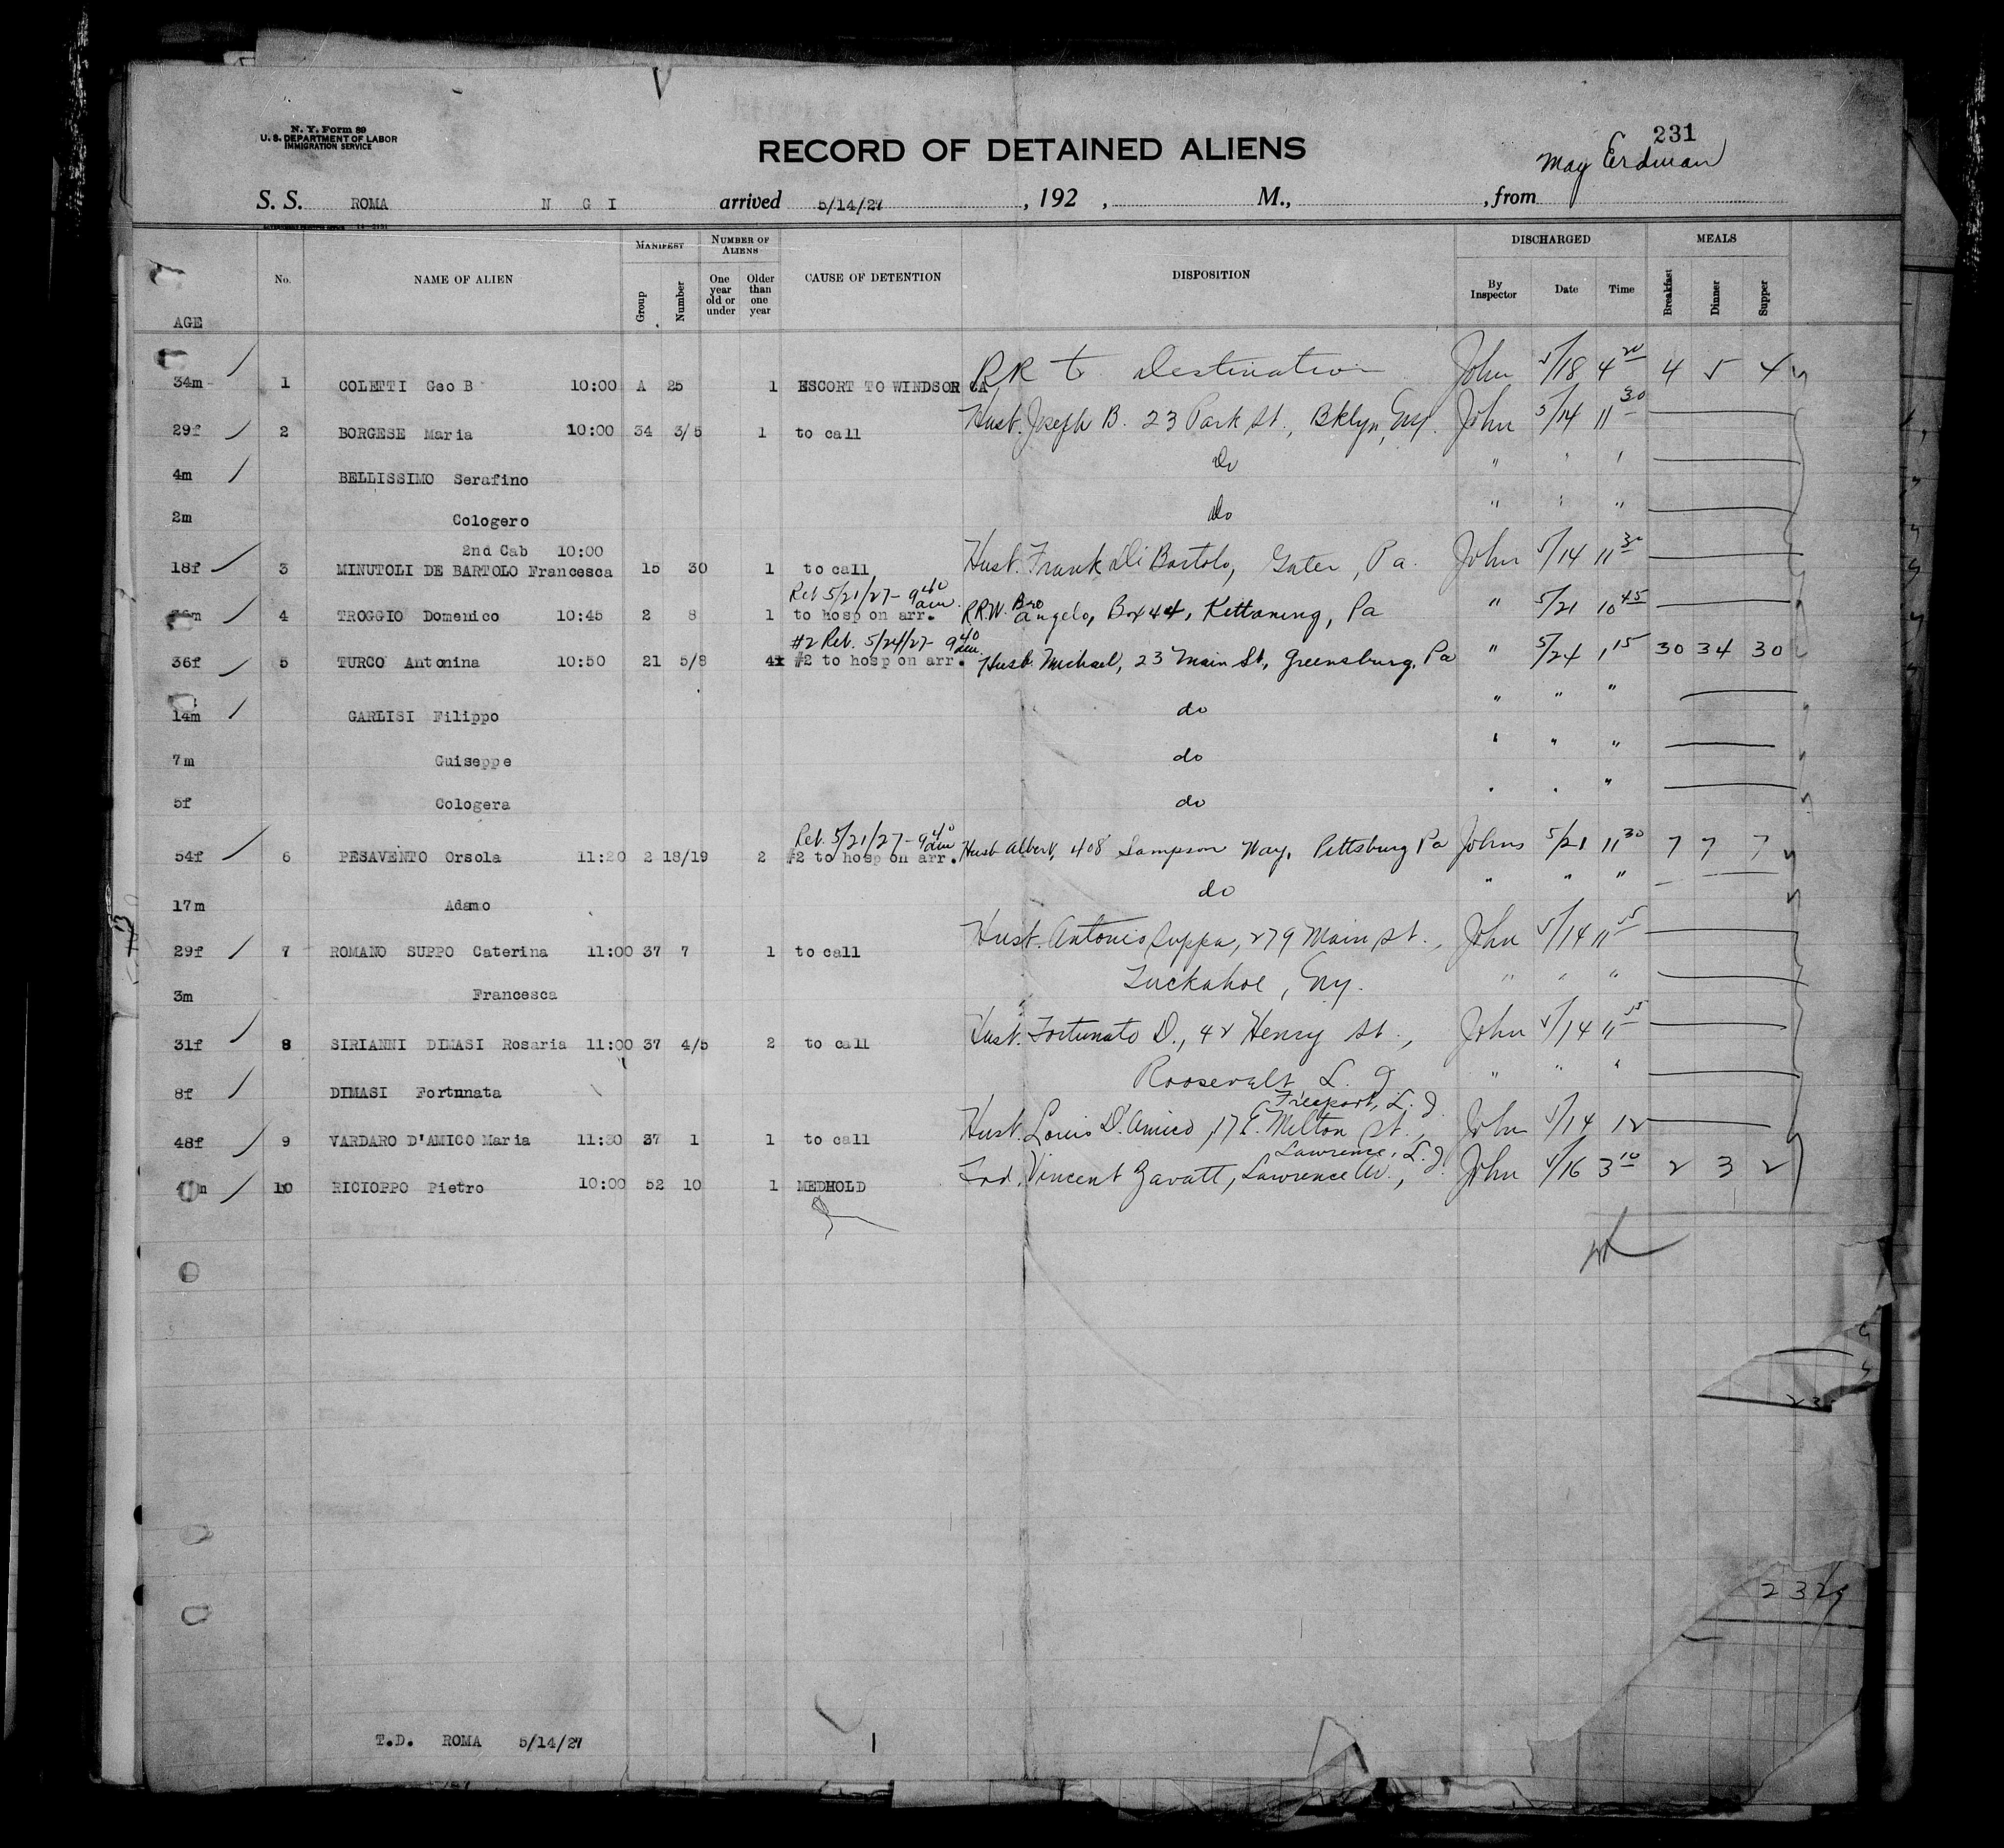 N. Y. Form 89
U. S. DEPARTMENT OF LABOR
IMMIGRATION SERVICE
RECORD OF DETAINED ALIENS
231
May Erdman
S. S. ROMA N G I arrived 5/14/27, 192 , M., , from
AGE No. NAME OF ALIEN MANIFEST Group Number NUMBER OF ALIENS One year old or under Older than one year CAUSE OF DETENTION DISPOSITION DISCHARGED By Inspector Date Time MEALS Breakfast Dinner Supper
34m 1 COLETTI Geo B 10:00 A 25 1 ESCORT TO WINDSOR CA RR to Destination John 5/18 4 20 4 5 4
29f 2 BORGESE Maria 10:00 34 3/5 1 to call Husb. Joseph B. 23 Park St., Bklyn, NY. John 5/14 11 30
4m BELLISSIMO Serafino do " " "
2m Cologero do " " "
2nd Cab 10:00
18f 3 MINUTOLI DE BARTOLO Francesca 15 30 1 to call Husb. Frank Di Bartolo, , Pa. John 5/14 11 30
Ret 5/21/27 - 9 40 am.
4 TROGGIO Domenico 10:45 2 8 1 to hosp on arr. R.R.W. Bro Angelo, Box 44, Kettaning, Pa " 5/21 10 45
#2 Ret. 5/24/27 - 9 40 am.
36f 5 TURCO Antonina 10:50 21 5/8 4 #2 to hosp on arr. Husb. Michael, 23 Main St, Greensburg, Pa " 5/24 1 15 30 34 30
14m GARLISI Filippo do " " "
7m Guiseppe do " " "
5f Cologera do " " "
Ret. 5/21/27 - 9 40 am
54f 6 PESAVENTO Orsola 11:20 2 18/19 2 #2 to hosp on arr. Husb Albert, 408 Sampson Way, Pittsburg Pa Johns 5/21 11 30 7 7 7
17m Adamo do " " "
29f 7 ROMANO SUPPO Caterina 11:00 37 7 1 to call Husb. Antonio Suppa, 279 Main St., John 5/14 11 55
3m Francesca Tuckahoe, NY. " " "
31f 8 SIRIANNI DIMASI Rosaria 11:00 37 4/5 2 to call Husb. Fortunato D., 42 Henry St., John 5/14 11 55
8f DIMASI Fortunata Roosevelt L. I. " " "
Freeport, L. I.
48f 9 VARDARO D'AMICO Maria 11:30 37 1 1 to call Husb. Louis D'Amico, 17 E. Milton St., John 5/14 12
Lawrence, L. I.
10 RICIOPPO Pietro 10:00 52 10 1 MEDHOLD Frd. Vincent Zavatt, Lawrence Av., John 5/16 3 10 2 3 2
T.D. ROMA 5/14/27